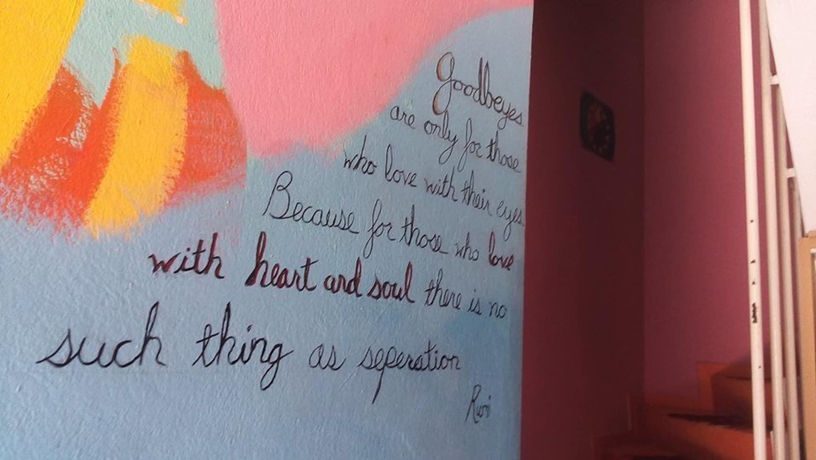 Goodbeyes
are only for those
who love with their eyes.
Because for those who love
with heart and soul there is no
such thing as seperation
Rumi